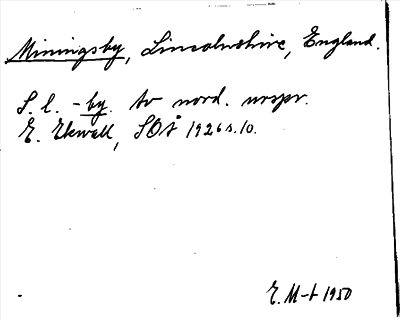 Miningsby, Lincolnshire, England.
S. l. -by. av nord. urspr.
E. Ekwall, SOÅ 1926 s. 10.
E. M-t 1950